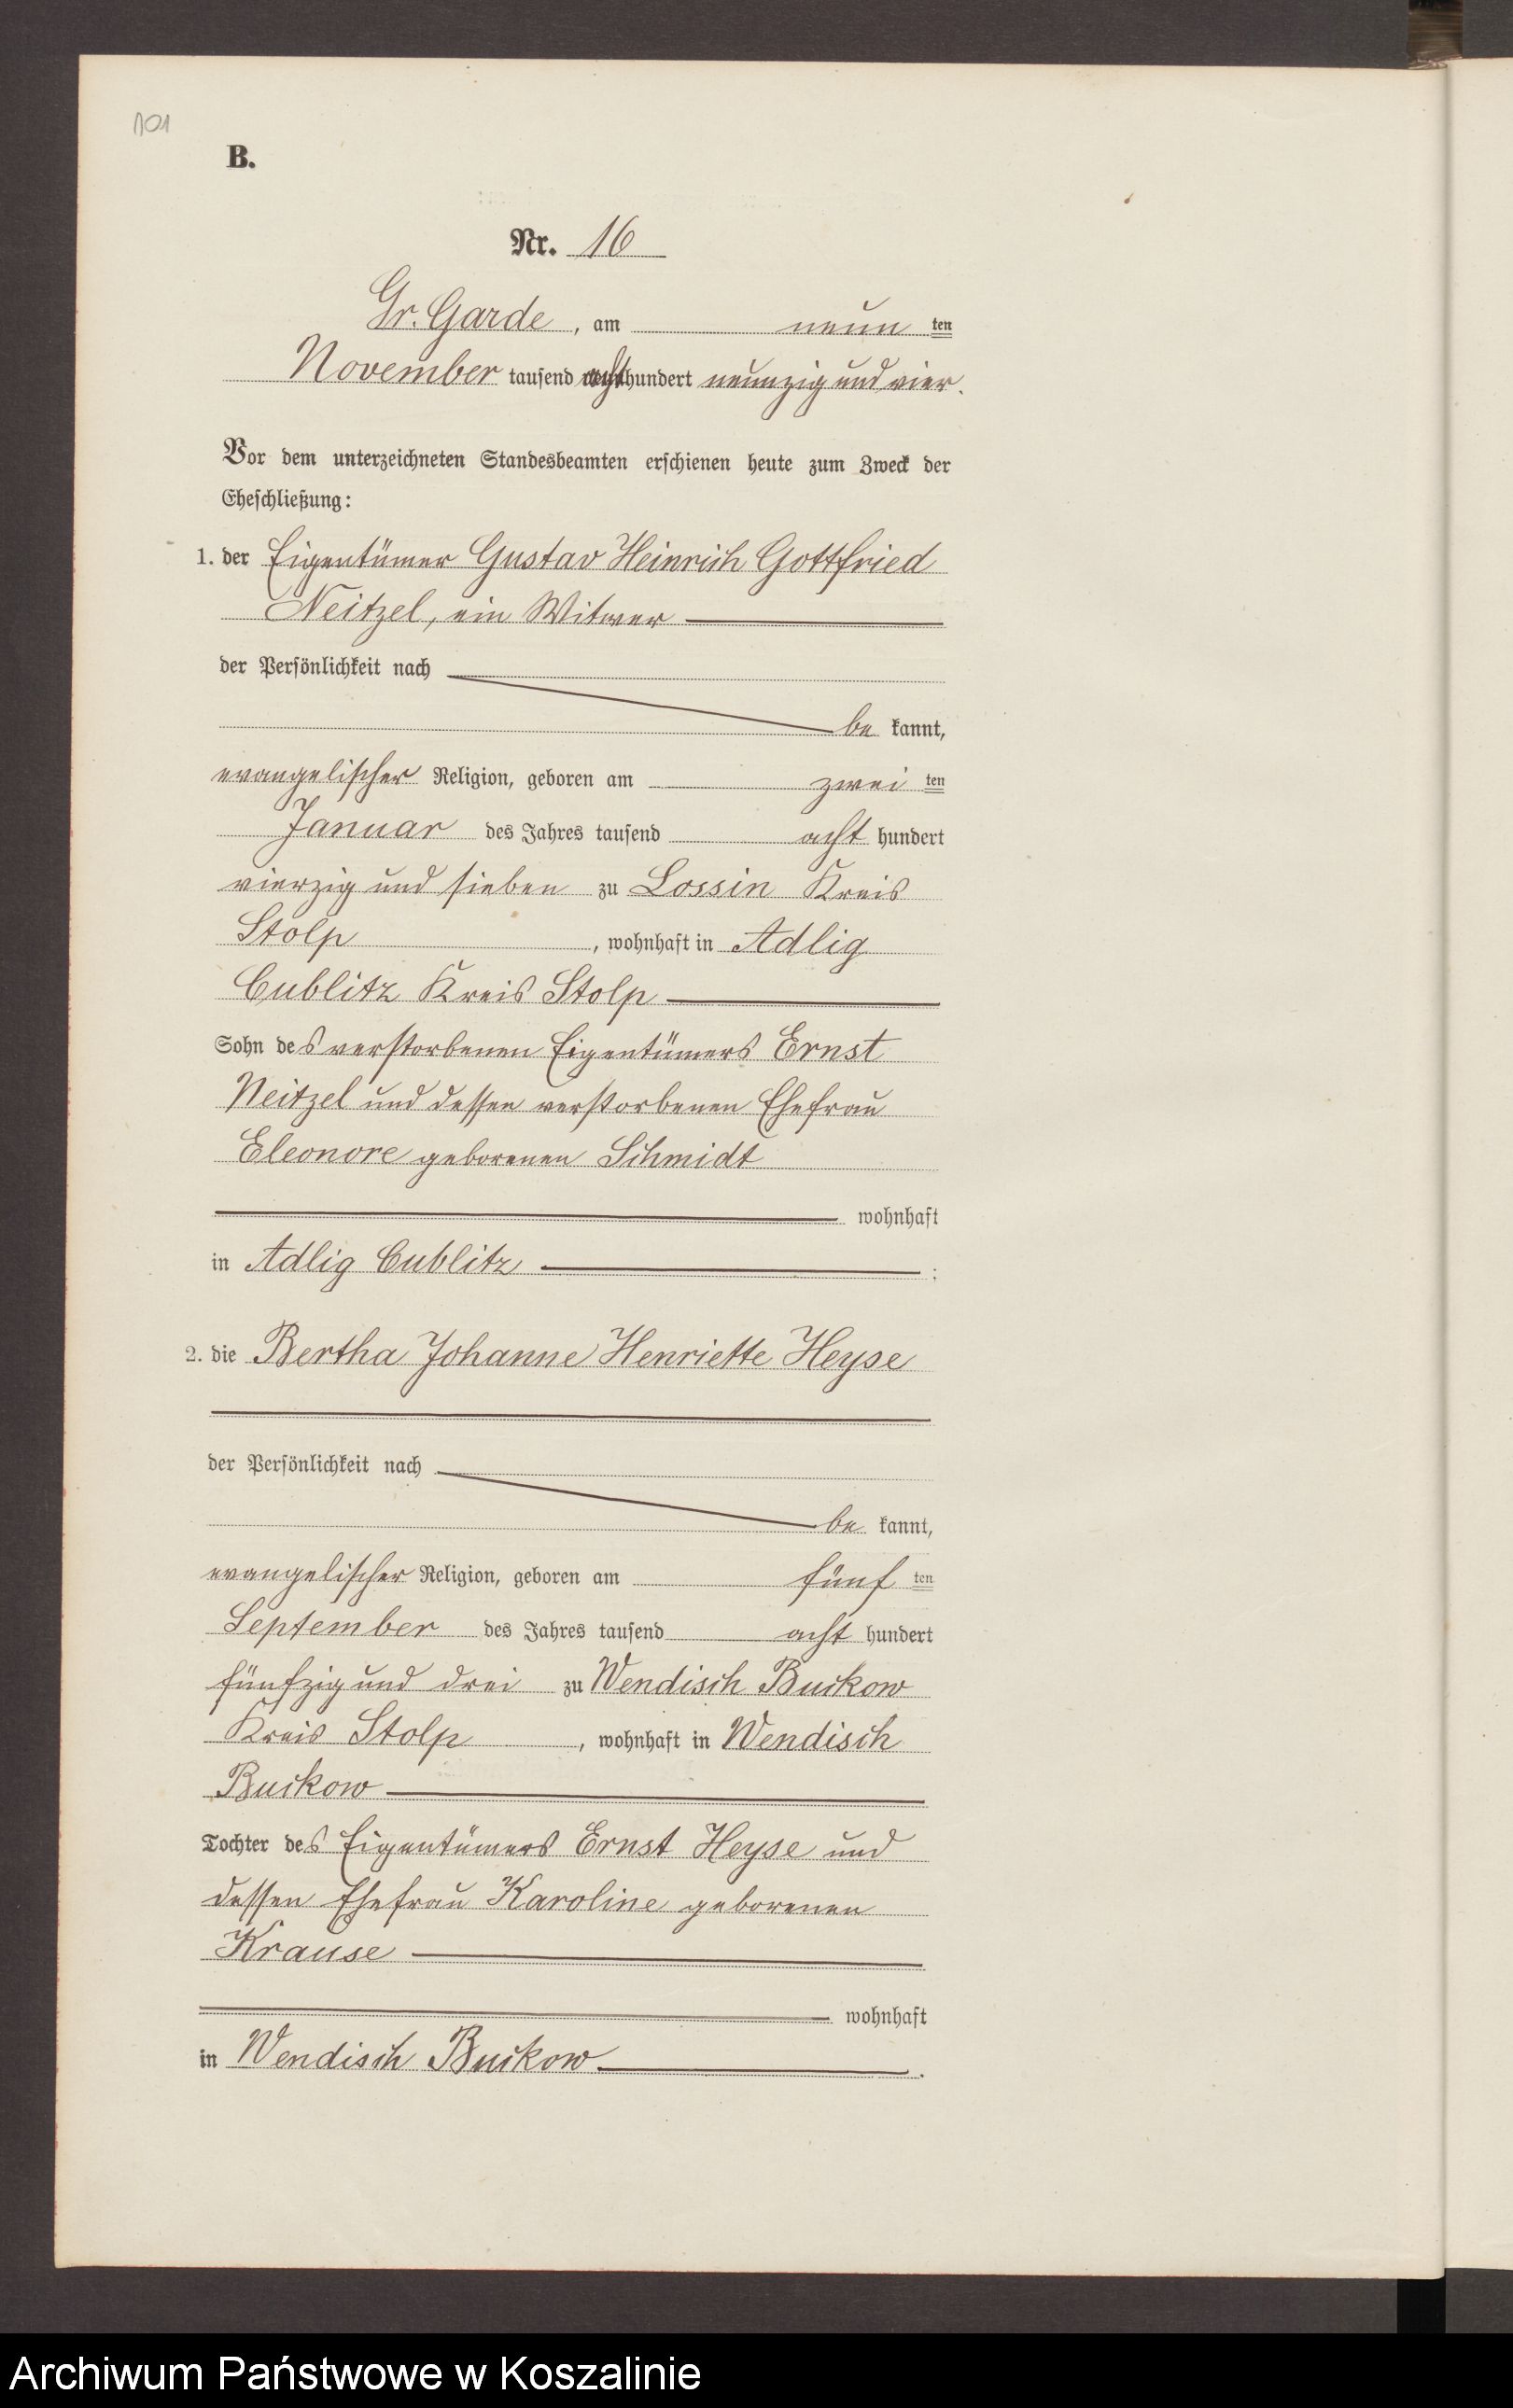 101
B.
Nr. 16
Gr. Garde, am neun ten
November tausend achthundert neunzig und vier.
Vor dem unterzeichneten Standesbeamten erschienen heute zum Zweck der
Eheschließung:
1. der Eigentümer Gustav Heinrich Gottfried
Neitzel, ein Witwer
der Persönlichkeit nach
be kannt,
evangelischer Religion, geboren am zwei ten
Januar des Jahres tausend acht hundert
vierzig und sieben zu Lossin Kreis
Stolp, wohnhaft in Adlig
Cublitz Kreis Stolp
Sohn des verstorbenen Eigentümers Ernst
Neitzel und dessen verstorbenen Ehefrau
Eleonore geborenen Schmidt
wohnhaft
in Adlig Cublitz ;
2. die Bertha Johanne Henriette Heyse
der Persönlichkeit nach
be kannt,
evangelischer Religion, geboren am fünf ten
September des Jahres tausend acht hundert
fünfzig und drei zu Wendisch Buckow
Kreis Stolp, wohnhaft in Wendisch
Buckow
Tochter des Eigentümers Ernst Heyse und
dessen Ehefrau Karoline geborenen
Krause
wohnhaft
in Wendisch Buckow.
Archiwum Państwowe w Koszalinie